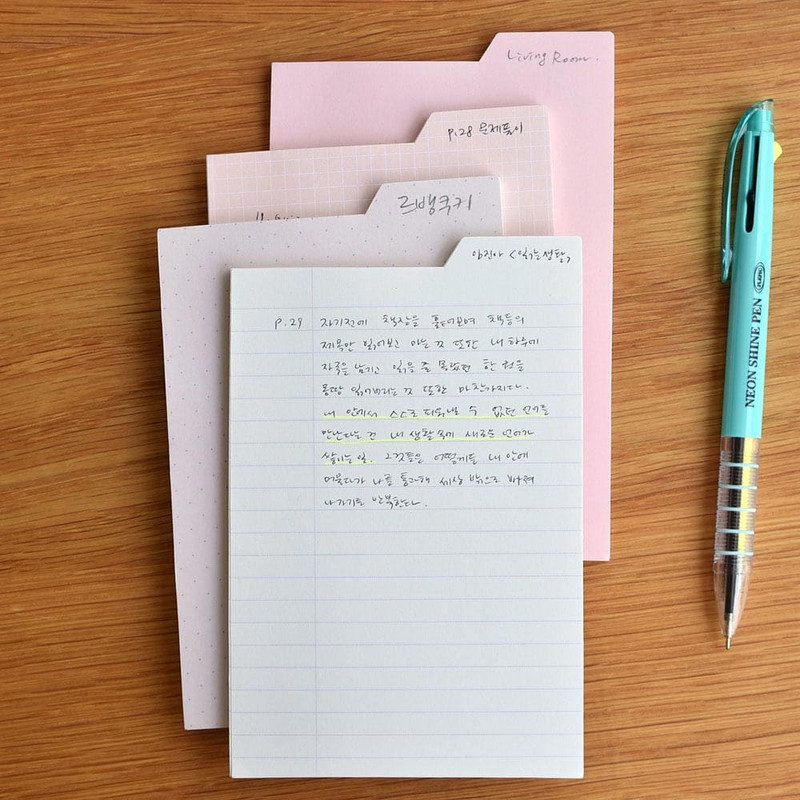 Living Room.
p.28 문제풀이
르뱅쿠키
임진아 <읽는생활>
p.29 자기전에 책장을 훑어보며 책등의
제목만 읽어보고 아는 것 또한 내 하루에
자국을 남기고 읽을 줄 몰랐던 한 권을
몽땅 읽어버리는 것 또한 마찬가지다.
내 안에서 스스로 피워낼 수 없던 언어를
만난다는 건 내 생활 속에 새로운 언어가
쌓이는 일. 그것들은 어떻게든 내 안에
머물다가 나를 통과해 세상 밖으로 빠져
나가기를 반복한다.
NEON SHINE PEN